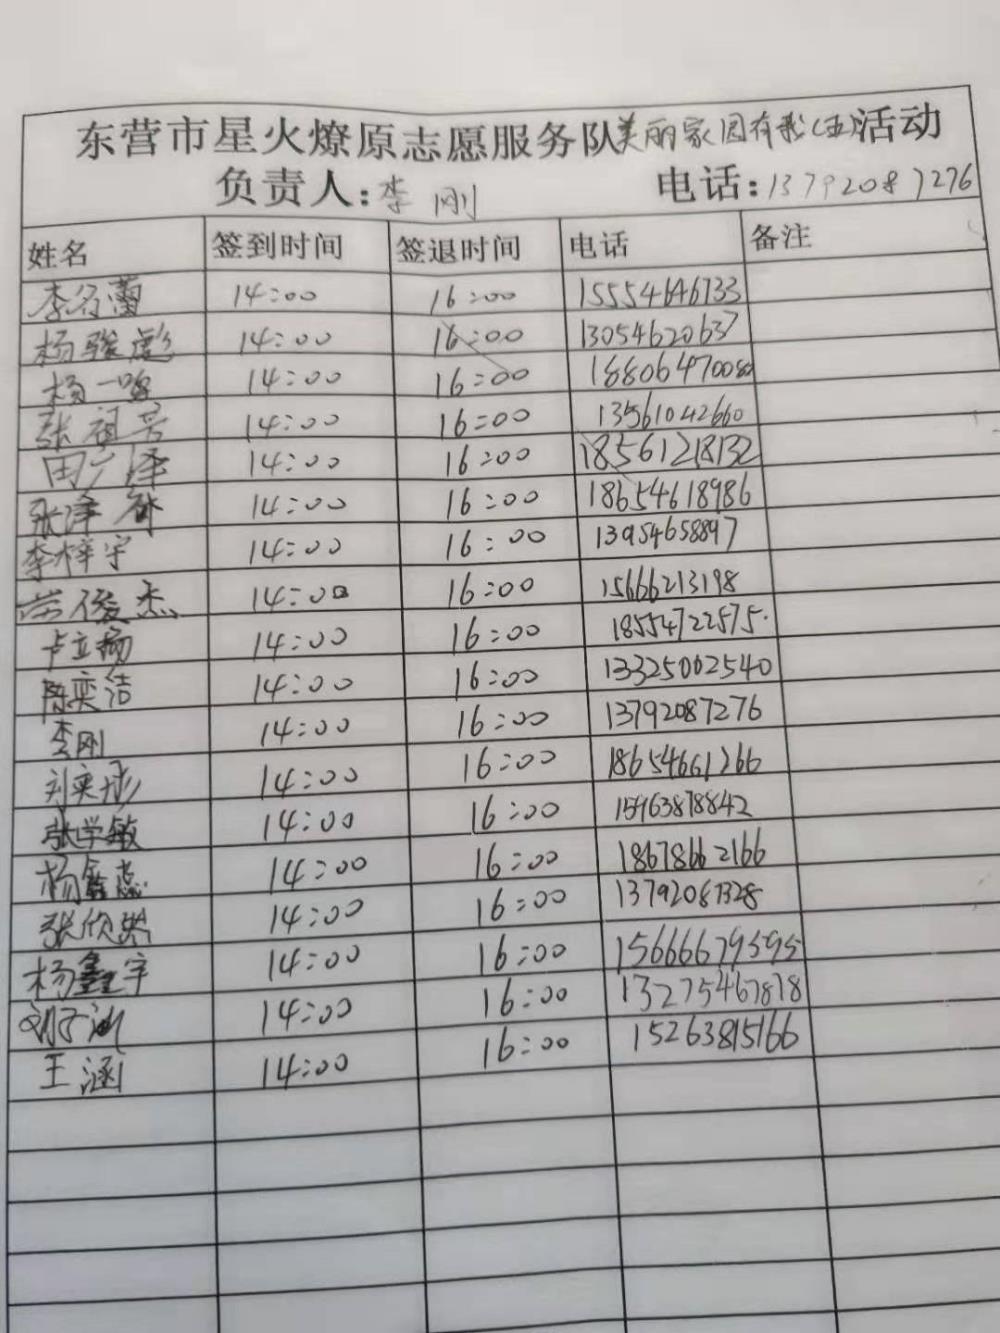 东营市星火燎原志愿服务队美丽家园有我(五)活动
负责人:李刚 电话:13792087276
姓名 签到时间 签退时间 电话 备注
14:00 16:00 15554646733
杨骏彪 14:00 16:00 13054620637
杨一鸣 14:00 16:00 18806470080
张祖 14:00 16:00 13561042660
田广泽 14:00 16:00 18561218132
张泽 14:00 16:00 18654618986
李梓宇 14:00 16:00 13954658897
俊杰 14:00 16:00 15666213198
卢立杨 14:00 16:00 18554722575
陈奕洁 14:00 16:00 13325002540
李刚 14:00 16:00 13792087276
刘奕彤 14:00 16:00 18654661266
张学敏 14:00 16:00 15963878842
杨鑫蕊 14:00 16:00 18678662166
张欣 14:00 16:00 13792087328
杨鑫宇 14:00 16:00 15666679595
14:00 16:00 13275467878
王涵 14:00 16:00 15263815166